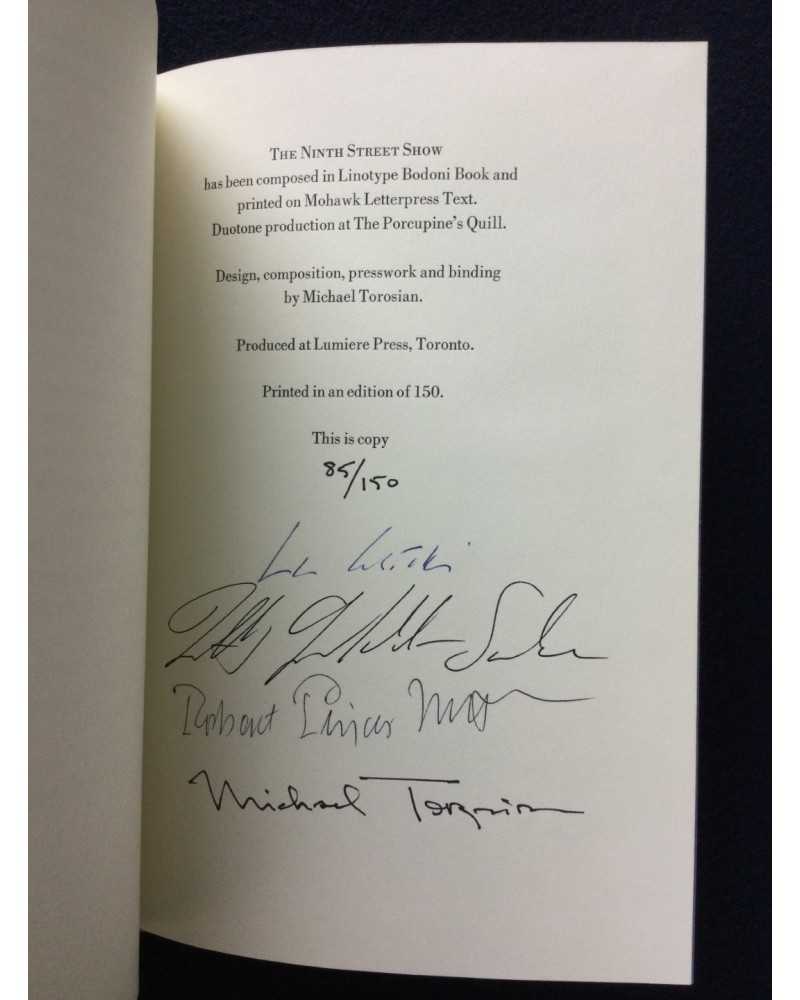 THE NINTH STREET SHOW
has been composed in Linotype Bodoni Book and
printed on Mohawk Letterpress Text.
Duotone production at The Porcupine's Quill.
Design, composition, presswork and binding
by Michael Torosian.
Produced at Lumiere Press, Toronto.
Printed in an edition of 150.
This is copy
85/150
Robert
Michael Torosian